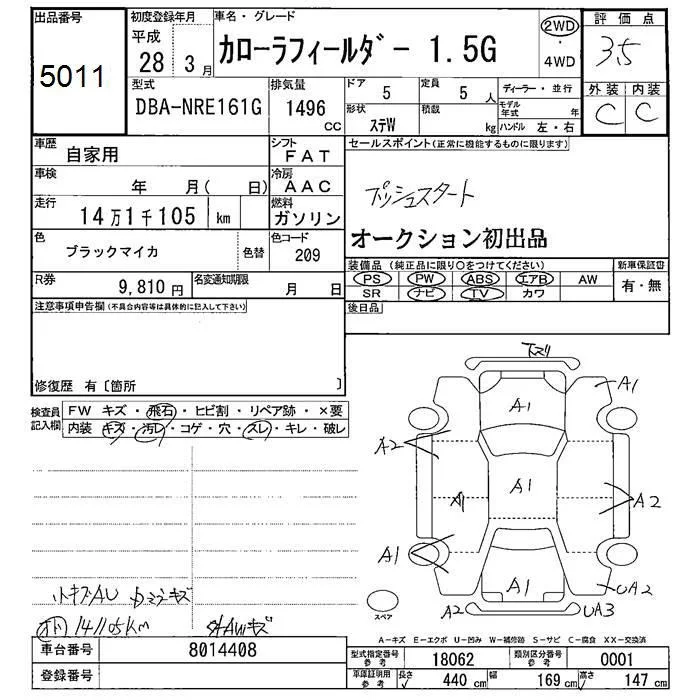 出品番号
5011
初度登録年月
平成
28 3月
車名・グレード
カローラフィールダー 1.5G
2WD
・
4WD
評価点
3.5
外装 内装
C C
型式
DBA-NRE161G
排気量
1496
cc
ドア
5
定員
5 人
ディーラー・並行
形状
ステW
積載
kg
モデル年式
年
ハンドル 左・右
車歴
自家用
シフト
FAT
車検
年 月( 日)
冷房
AAC
走行
14万1千105 km
燃料
ガソリン
色
ブラックマイカ
色替
色コード
209
R券
9,810 円
名変通知期限
月 日
セールスポイント(正常に機能するものに限ります)
プッシュスタート
オークション初出品
装備品 (純正品に限り○をつけてください)
新車保証書
PS PW ABS エアB AW
SR ナビ TV カワ
有・無
後日品
注意事項申告欄(不具合内容等は具体的に記入して下さい)
修復歴 有〔箇所 〕
検査員
記入欄
FW キズ・飛石・ヒビ割・リペア跡・×要
内装 キズ・汚レ・コゲ・穴・スレ・キレ・破レ
下スリ
A1
A1
A2
A1
A1
A2
A1
A1
UA2
A2
UA3
スペア
小キズAU
141105KM
外AWキズ
A-キズ E-エクボ U-凹み W-補修跡 S-サビ C-腐食 XX-交換済
車台番号
8014408
登録番号
型式指定番号
参考
18062
類別区分番号
参考
0001
車庫証明用
参考
長さ
440 cm
幅
169 cm
高さ
147 cm